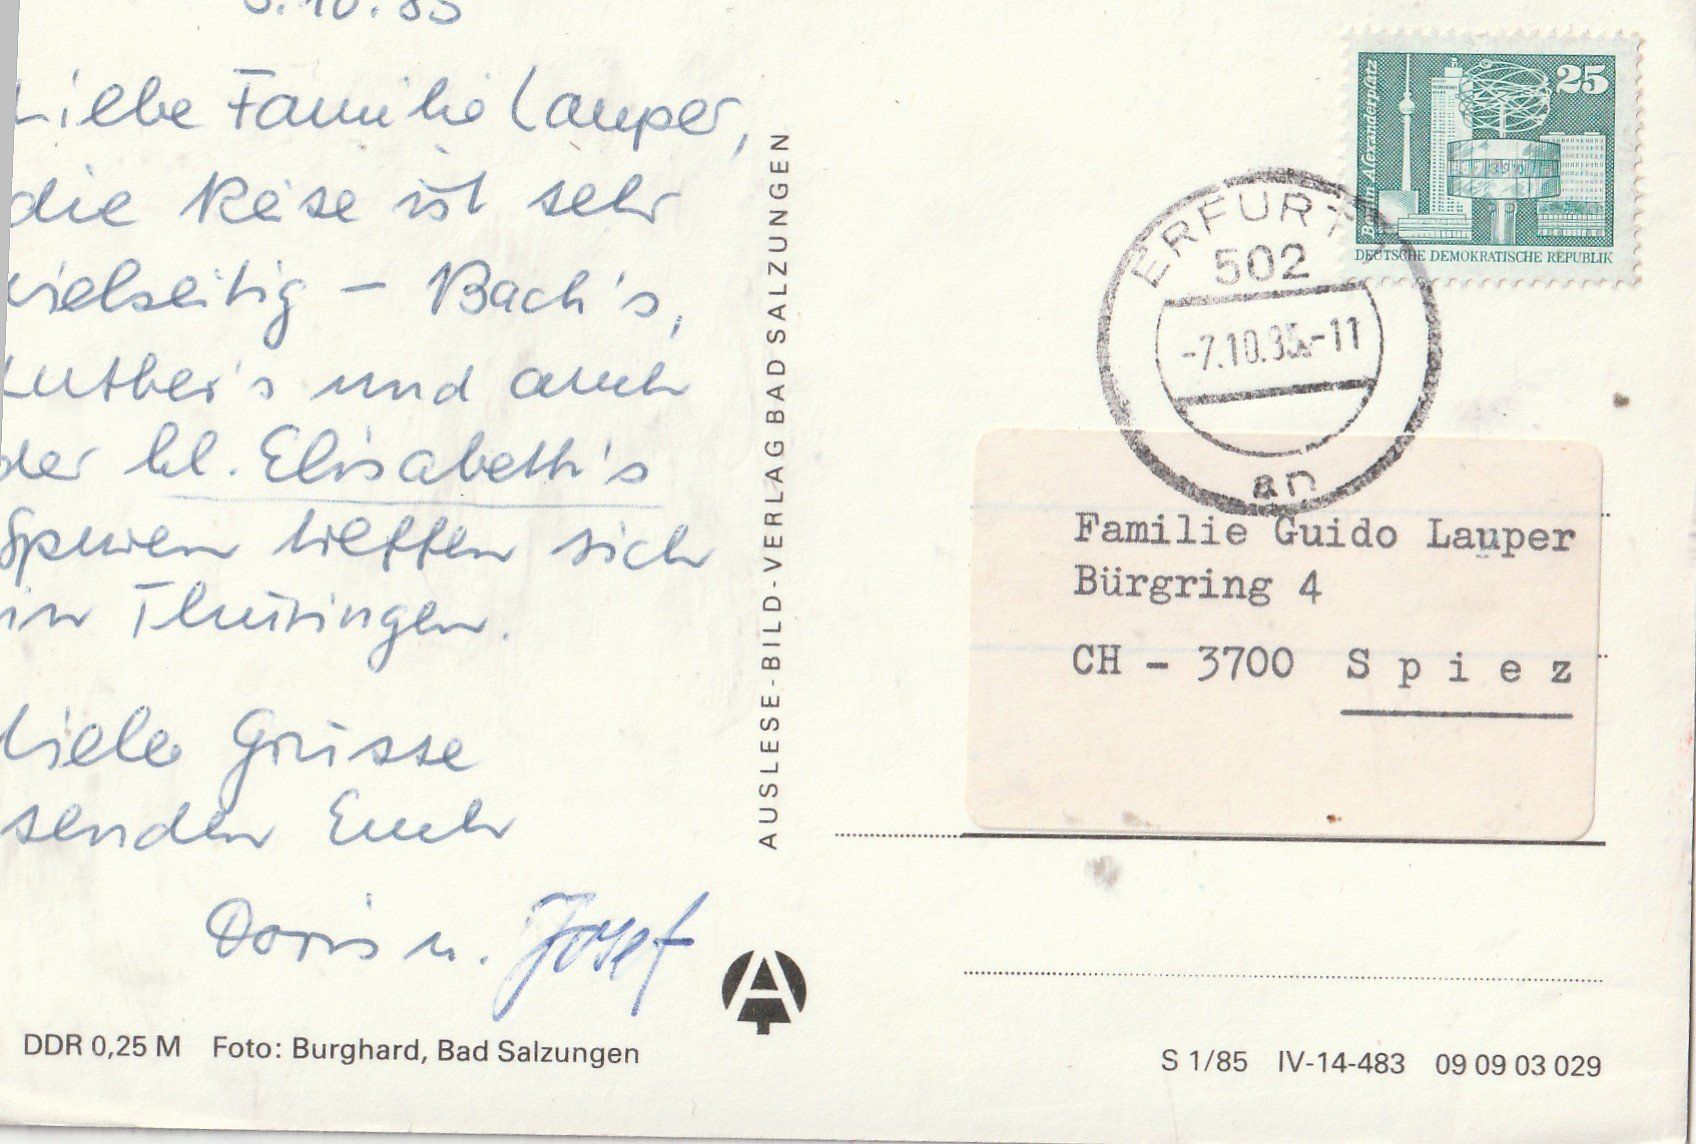 5.10.85
Liebe Familie Lauper,
die Reise ist sehr
vielseitig – Bach's,
Luther's und auch
der hl. Elisabeth's
Spuren treffen sich
in Thüringen.
Liebe Grüsse
senden Euch
Doris u. Josef
DDR 0,25 M Foto: Burghard, Bad Salzungen
AUSLESE-BILD-VERLAG BAD SALZUNGEN
A
25
Berlin, Alexanderplatz
DEUTSCHE DEMOKRATISCHE REPUBLIK
ERFURT
502
-7.10.85.-11
an
Familie Guido Lauper
Bürgring 4
CH - 3700 Spiez
S 1/85 IV-14-483 09 09 03 029